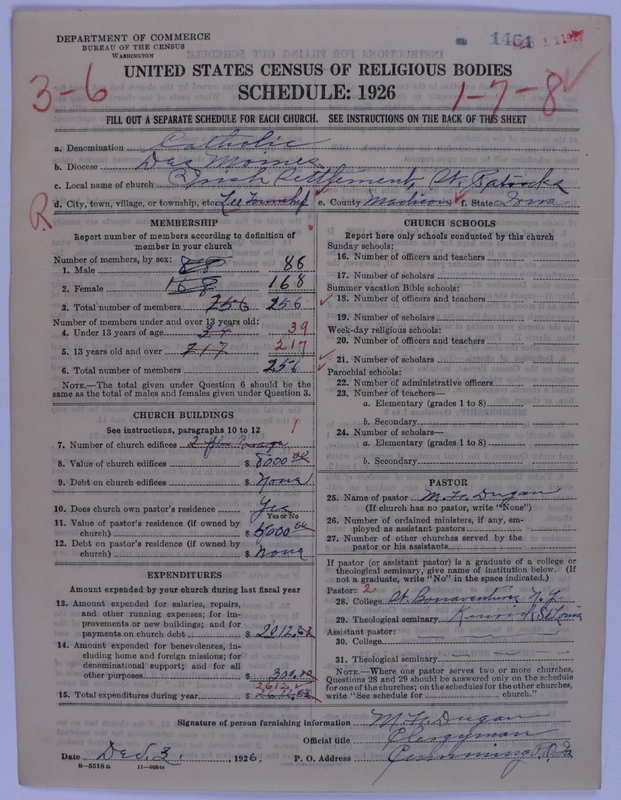 DEPARTMENT OF COMMERCE
BUREAU OF THE CENSUS
WASHINGTON
1461
3-6
1-7-8
UNITED STATES CENSUS OF RELIGIOUS BODIES
SCHEDULE: 1926
FILL OUT A SEPARATE SCHEDULE FOR EACH CHURCH. SEE INSTRUCTIONS ON THE BACK OF THIS SHEET
a. Denomination Catholic
b. Diocese Des Moines
c. Local name of church Irish Settlement, St. Patricks
d. City, town, village, or township, etc. Lee Township e. County Madison f. State Iowa
R
MEMBERSHIP
Report number of members according to definition of member in your church
Number of members, by sex:
1. Male 88 88
2. Female 168 168
3. Total number of members 256 256
Number of members under and over 13 years old:
4. Under 13 years of age 39
5. 13 years old and over 217 217
6. Total number of members 256
NOTE.—The total given under Question 6 should be the same as the total of males and females given under Question 3.
CHURCH BUILDINGS
See instructions, paragraphs 10 to 12
7. Number of church edifices 1
8. Value of church edifices $ 8000 00
9. Debt on church edifices $ None
10. Does church own pastor's residence Yes
Yes or No
11. Value of pastor's residence (if owned by church) $ 5000 00
12. Debt on pastor's residence (if owned by church) $ None
EXPENDITURES
Amount expended by your church during last fiscal year
13. Amount expended for salaries, repairs, and other running expenses; for improvements or new buildings; and for payments on church debt $
14. Amount expended for benevolences, including home and foreign missions; for denominational support; and for all other purposes $ 300.00
15. Total expenditures during year $
CHURCH SCHOOLS
Report here only schools conducted by this church
Sunday schools:
16. Number of officers and teachers
17. Number of scholars
Summer vacation Bible schools:
18. Number of officers and teachers
19. Number of scholars
Week-day religious schools:
20. Number of officers and teachers
21. Number of scholars
Parochial schools:
22. Number of administrative officers
23. Number of teachers—
a. Elementary (grades 1 to 8)
b. Secondary
24. Number of scholars—
a. Elementary (grades 1 to 8)
b. Secondary
PASTOR
25. Name of pastor M. F. Dugan
(If church has no pastor, write "None")
26. Number of ordained ministers, if any, employed as assistant pastors
27. Number of other churches served by the pastor or his assistants
If pastor (or assistant pastor) is a graduate of a college or theological seminary, give name of institution below. (If not a graduate, write "No" in the space indicated.)
Pastor: 2
28. College St. Bonaventure N. Y.
29. Theological seminary Kenrick St Louis
Assistant pastor:
30. College
31. Theological seminary
NOTE.—Where one pastor serves two or more churches, Questions 28 and 29 should be answered only on the schedule for one of the churches; on the schedules for the other churches, write "See schedule for church."
Signature of person furnishing information M. F. Dugan
Official title Clergyman
Date Dec. 3, 1926. P. O. Address Cumming, P.O. Ia
8—5518a 11—9054a